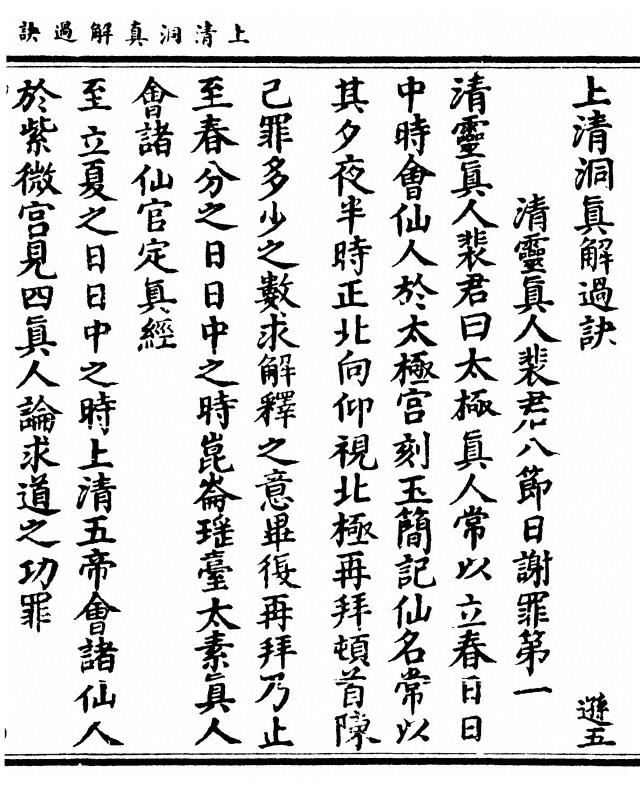 上清洞真解過訣
上清洞眞解過訣
遜五
清靈眞人裴君八節日謝罪第一
清靈眞人裴君曰太極眞人常以立春日日
中時會仙人於太極宮刻玉簡記仙名常以
其夕夜半時正北向仰視北極再拜頓首陳
己罪多少之數求解釋之意畢復再拜乃止
至春分之日日中之時崑崙瑶臺太素眞人
會諸仙官定眞經
至立夏之日日中之時上清五帝會諸仙人
於紫微宮見四眞人論求道之功罪